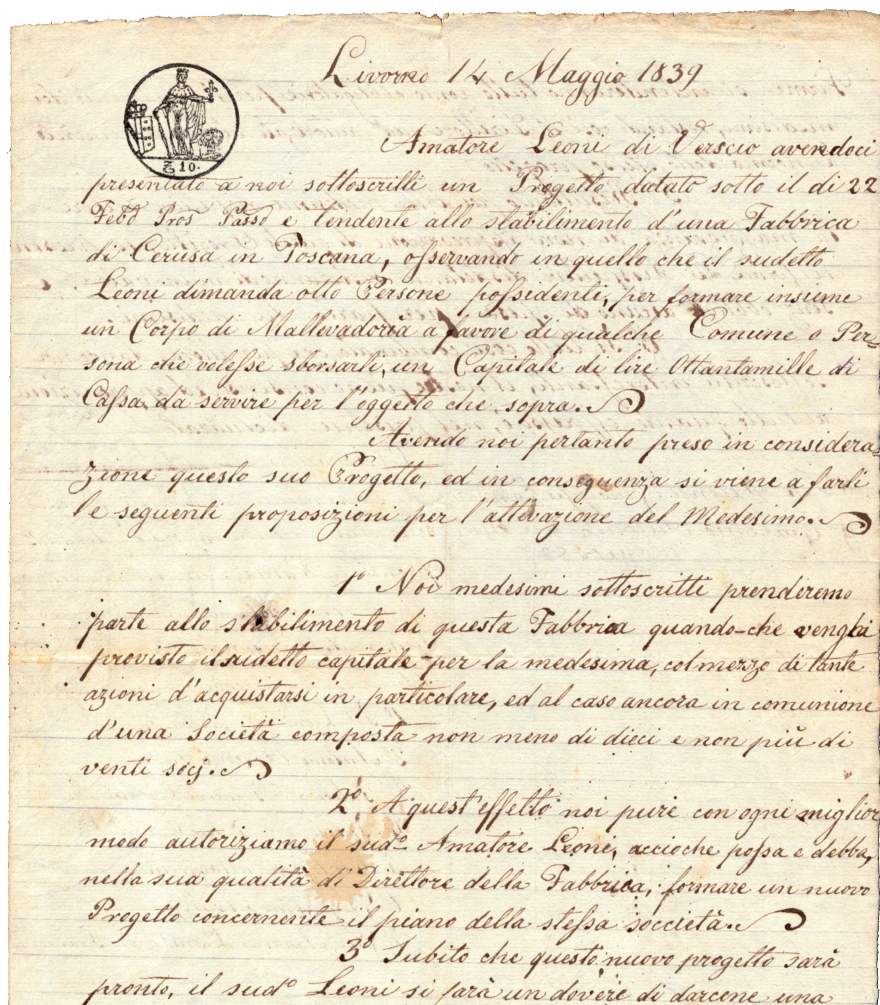 Livorno 14 Maggio 1839
ƻ 10.
Amatore Leoni di Verscio avendoci
presentato a noi sottoscritti un Progetto datato sotto il di 22
Febo Pros Passo e tendente allo stabilimento d'una Fabbrica
di Cerusa in Toscana, osservando in quello che il sudetto
Leoni dimanda otto Persone possidenti, per formare insieme
un Corpo di Mallevadoria a favore di qualche Comune o Per=
sona che volesse sborsarli, un Capitale di lire Ottantamille di
Cassa da servire per l'oggetto che sopra.
Avendo noi pertanto preso in considera=
zione questo suo Progetto, ed in conseguenza si viene a farli
le seguenti proposizioni per l'attivazione del Medesimo.
1º Noi medesimi sottoscritti prenderemo
parte allo stabilimento di questa Fabbrica quando-che venghi
provisto il sudetto capitale per la medesima, col mezzo di tante
azioni d'acquistarsi in particolare, ed al caso ancora in comunione
d'una Società composta non meno di dieci e non più di
venti socj.
2º A quest'effetto noi pure con ogni miglior
modo autoriziamo il sudº Amatore Leoni, accioche possa e debba,
nella sua qualità di Direttore della Fabbrica, formare un nuovo
Progetto concernente il piano della stessa soccietà.
3º Subito che questo nuovo progetto sarà
pronto, il sudº Leoni si farà un dovere di darcene una